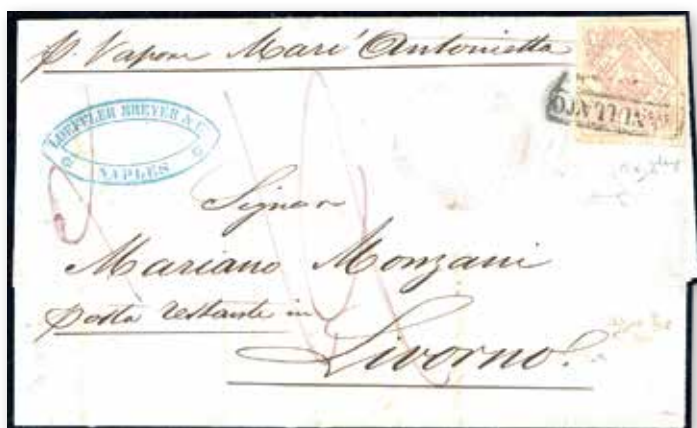 p. Vapore Mari' Antonietta
LOEFFLER BREYER & C.
NAPLES
ANNULLATO
Signor
Mariano Monzani
posta restante in
Livorno.